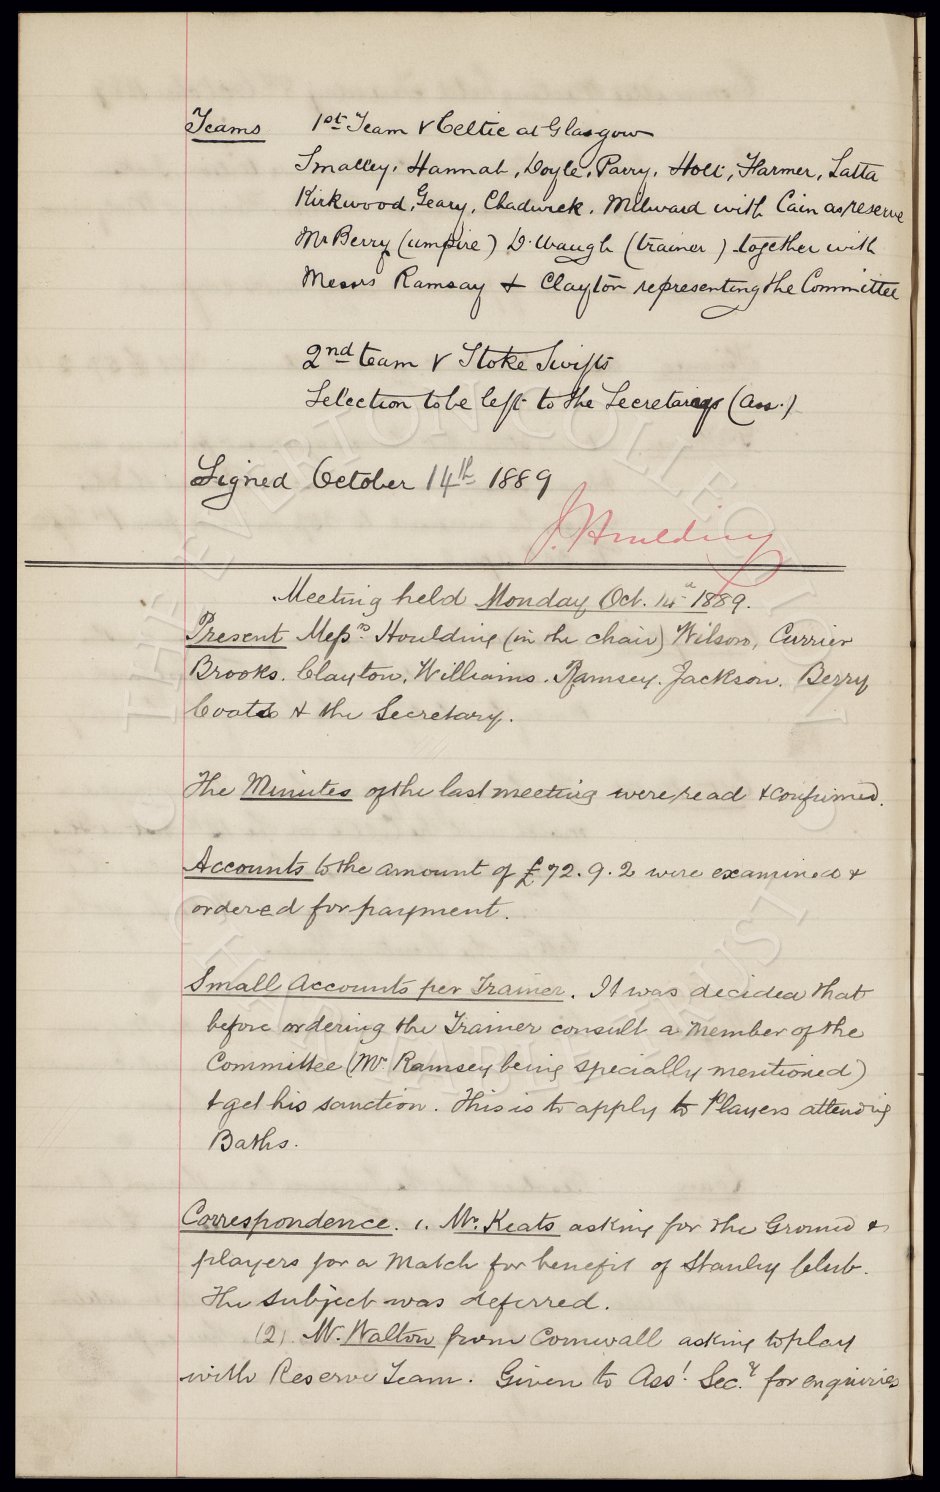 Teams 1st Team v Celtic at Glasgow
Smalley, Hannah, Doyle, Parry, Holt, Farmer, Latta
Kirkwood, Geary, Chadwick, Milward with Cain as reserve
Mr Berry (umpire) D. Waugh (trainer) together with
Messrs Ramsay & Clayton representing the Committee
2nd team v Stoke Swifts
Selection to be left to the Secretary (Ass.)
Signed October 14th 1889
J. Houlding
Meeting held Monday Oct. 14th 1889.
Present Messrs Houlding (in the chair) Wilson, Currier
Brooks. Clayton, Williams. Ramsey. Jackson. Berry
Coates & the Secretary.
The Minutes of the last meeting were read & confirmed.
Accounts to the amount of £72.9.2 were examined &
ordered for payment.
Small Accounts per Trainer. It was decided that
before ordering the Trainer consult a member of the
Committee (Mr Ramsey being specially mentioned)
& get his sanction. This is to apply to Players attending
Baths.
Correspondence. 1. Mr. Keats asking for the Ground &
players for a Match for benefit of Stanley Club.
The subject was deferred.
(2) Mr. Walton from Cornwall asking to play
with Reserve Team. Given to Asst. Secy. for enquiries
THE EVERTON COLLECTION
CHARITABLE TRUST